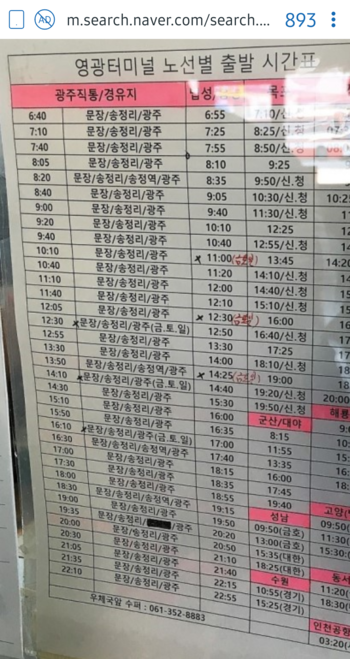 m.search.naver.com/search.... 893
AD
영광터미널 노선별 출발 시간표
광주직통/경유지
6:40 문장/송정리/광주 6:55 7:10/신.청
7:10 문장/송정리/광주 7:25 8:25/신.청
7:40 문장/송정리/광주 7:55 8:50/신.청
8:05 문장/송정리/광주 8:10 9:25
8:20 문장/송정리/송정역/광주 8:35 9:50/신.청
8:40 문장/송정리/광주 9:05 10:30/신.청
9:00 문장/송정리/광주 9:40 11:30/신.청
9:20 문장/송정리/광주 10:10 12:25
9:40 문장/송정리/광주 10:40 12:55/신.청
10:10 문장/송정리/광주 x 11:00 13:45
10:40 문장/송정리/광주 11:20 14:10/신.청
11:10 문장/송정리/광주 12:00 14:40/신.청
11:40 문장/송정리/광주 12:10 15:10/신.청
12:05 문장/송정리/광주 x 12:30 16:00
12:30 x문장/송정리/광주(금.토.일) 12:50 16:40/신.청
12:55 문장/송정리/광주 13:30 17:25
13:30 문장/송정리/광주 14:00 18:10/신.청
13:50 문장/송정리/송정역/광주 x 14:25 19:00
14:10 x문장/송정리/광주(금.토.일) 14:40 19:20/신.청
14:30 문장/송정리/광주 15:30 19:50/신.청
15:10 문장/송정리/광주 16:00 군산/대야
15:50 문장/송정리/광주 16:35 8:15
16:10 x문장/송정리/광주(금.토.일) 17:00 11:55
16:30 문장/송정리/송정역/광주 17:40 13:35
17:00 문장/송정리/광주 18:15 16:00
17:30 문장/송정리/광주 18:35 17:45
18:00 문장/송정리/광주 18:55 19:40
18:30 문장/송정리/송정역/광주 19:15 성남
19:00 문장/송정리/광주 19:50 09:50(금호)
19:35 문장/송정리/광주 20:20 13:00(금호)
20:00 문장/송정리/ /광주 20:50 15:35(대한)
20:30 문장/송정리/광주 21:10 18:25(대한)
21:05 문장/송정리/광주 21:40 수원
21:35 문장/송정리/광주 22:15 10:55(경기)
22:10 문장/송정리/광주 22:55 15:25(경기)
우체국앞 수퍼 : 061-352-8883